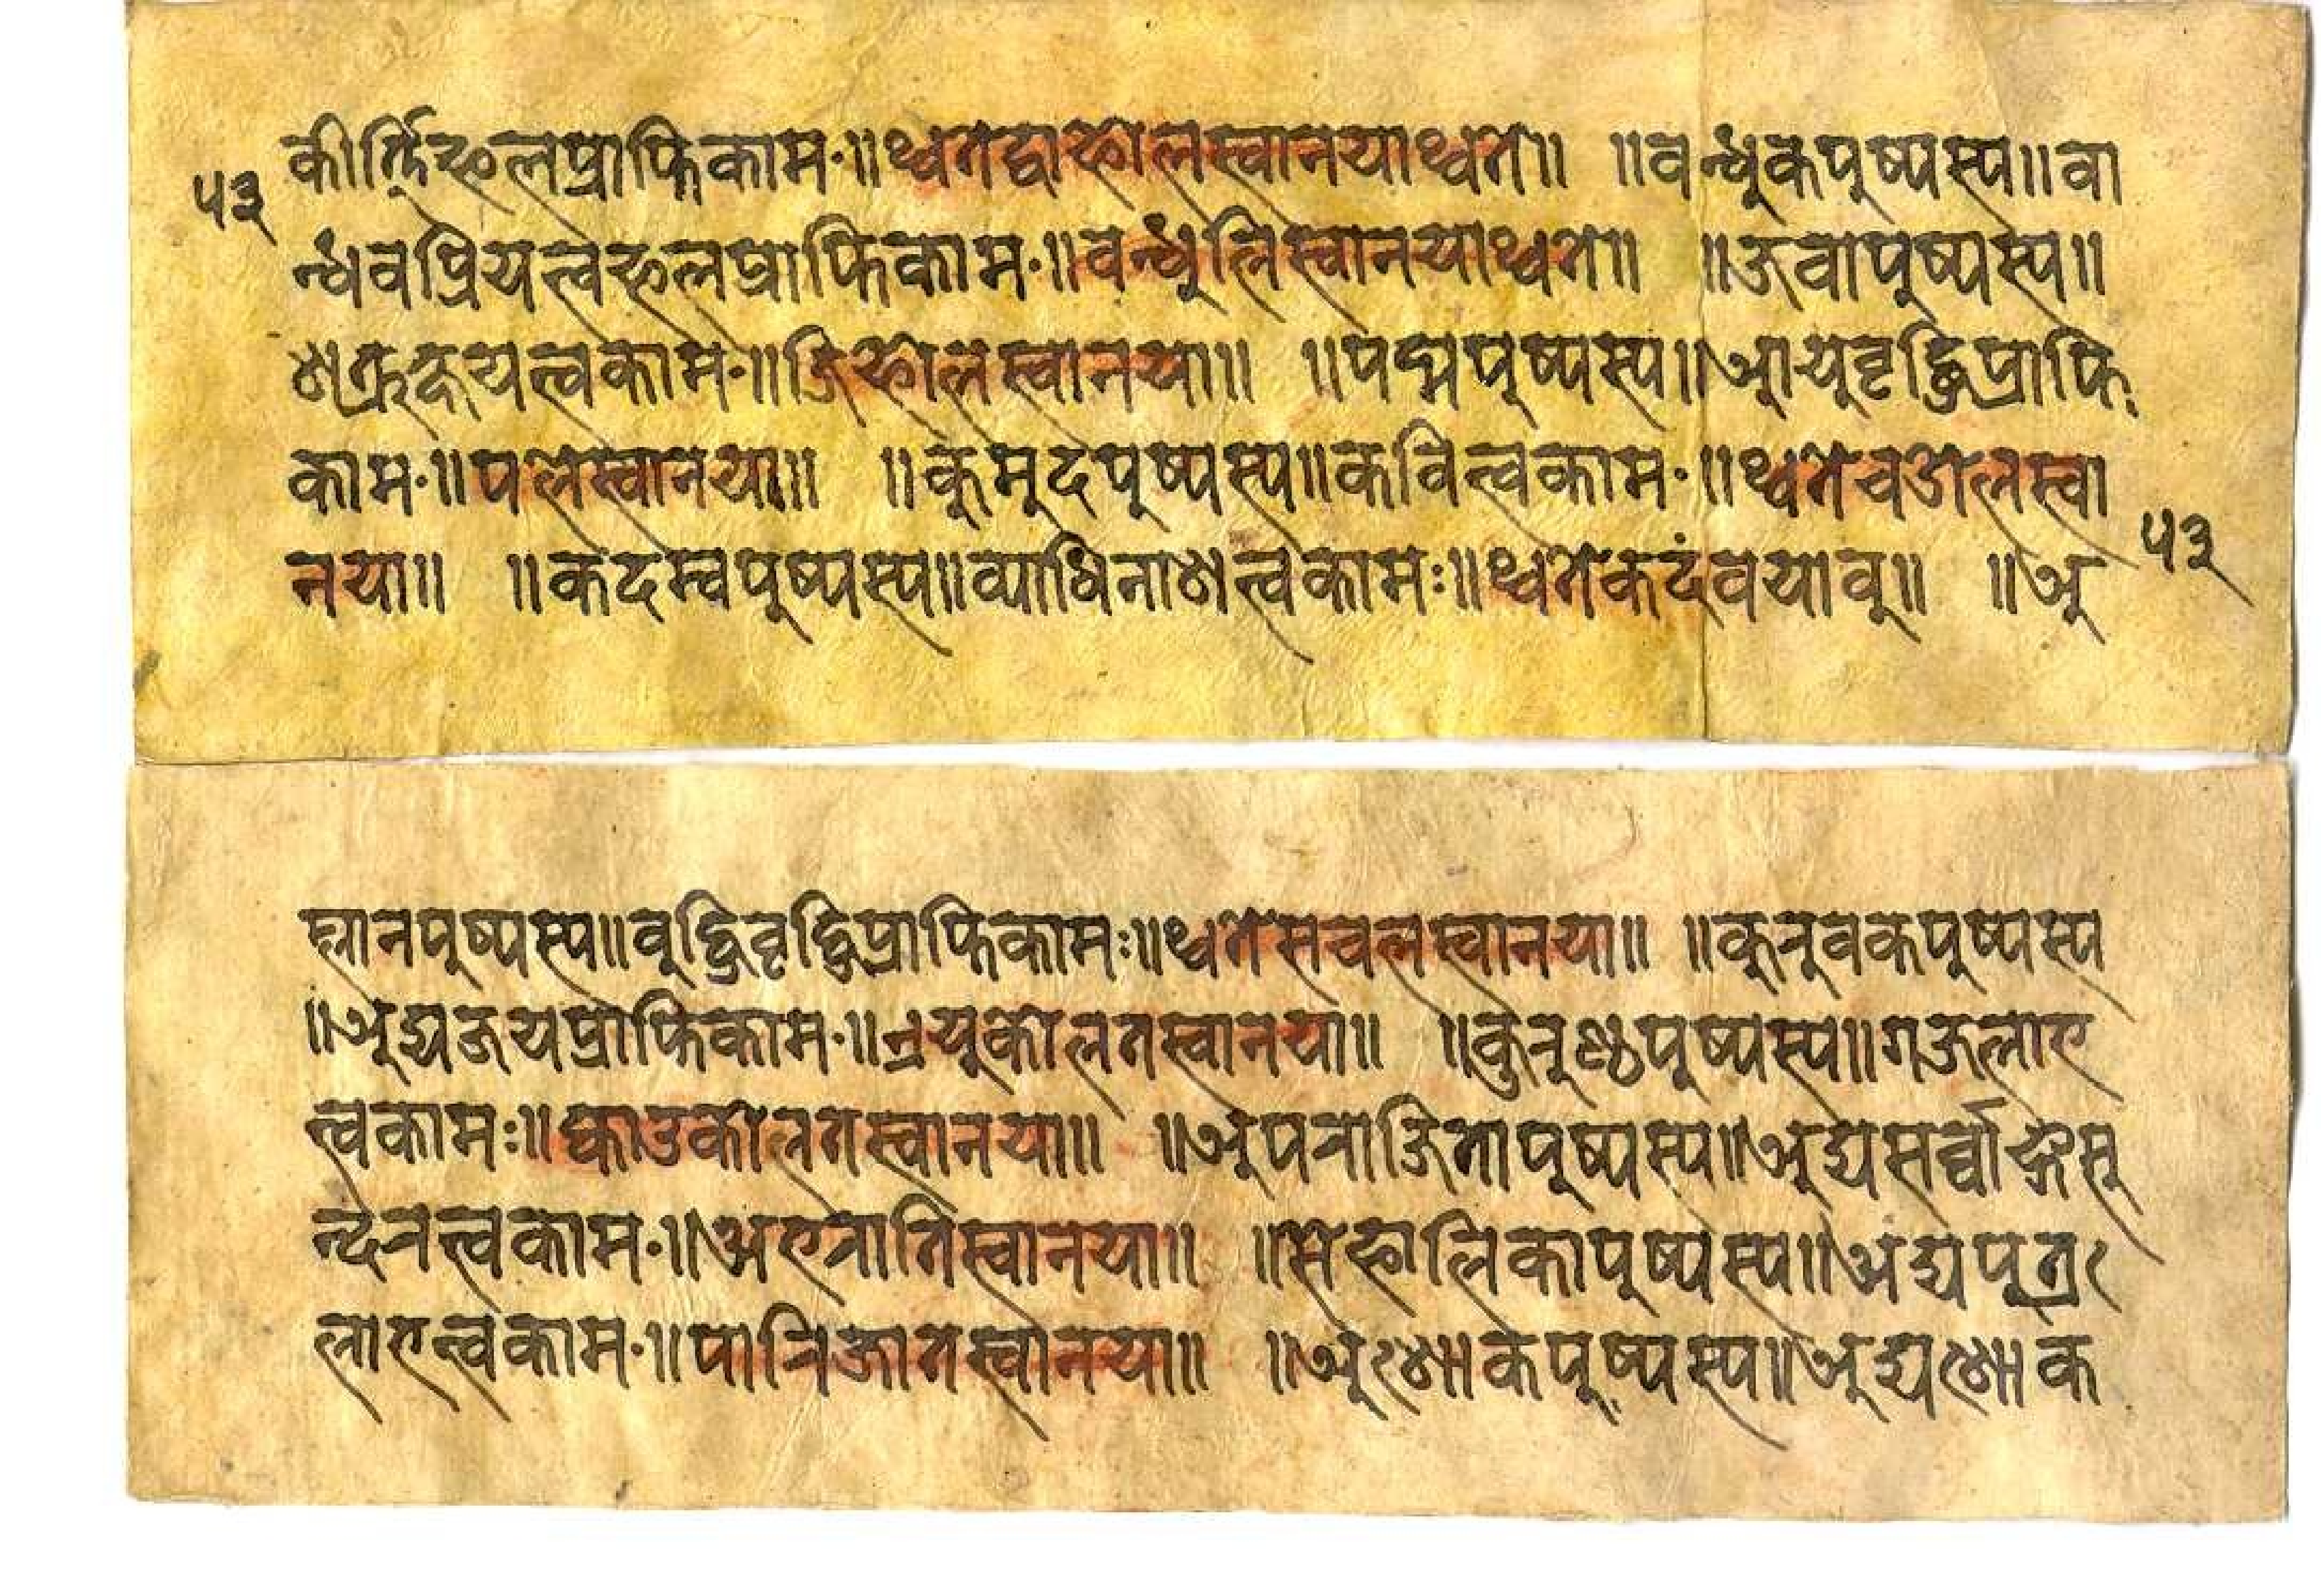 ५३
कीर्त्तिफलप्राप्तिकामः॥थ्वतेद्वाफोलस्वानयाथ्वते॥ ॥वन्धुकपुष्पस्य॥वा
न्धवप्रियत्वफलप्राप्तिकामः॥वन्धुलिस्वानयाथ्वते॥ ॥जवापुष्पस्य॥
शत्रुक्षयत्वकामः॥जिफोलस्वानया॥ ॥पद्मपुष्पस्य॥आयुवृद्धिप्राप्ति
कामः॥पलेस्वानया॥ ॥कुमुदपुष्पस्य॥कवित्वकामः॥थ्वतेचओलस्वा
नया॥ ॥कदम्वपुष्पस्य॥व्याधिनाशत्वकामः॥थ्वतेकदंवयावु॥ ॥अ
५३
म्लानपुष्पस्य॥वुद्धिवृद्धिप्राप्तिकामः॥थ्वतेसचलस्वानया॥ ॥कुरुवकपुष्पस्य
॥अद्यजयप्राप्तिकामः॥त्रयुकोलतस्वानया॥ ॥कुरुण्ठपुष्पस्य॥गजलाभ
त्वकामः॥ह्माउकोलतस्वानया॥ ॥अपराजितापुष्पस्य॥अद्यसर्व्वाङ्गसु
न्दरत्वकामः॥अभरातिस्वानया॥ ॥सेफालिकापुष्पस्य॥अद्यपुत्र
लाभत्वकामः॥पारिजातस्वानया॥ ॥अशोकपुष्पस्य॥अद्यशोक